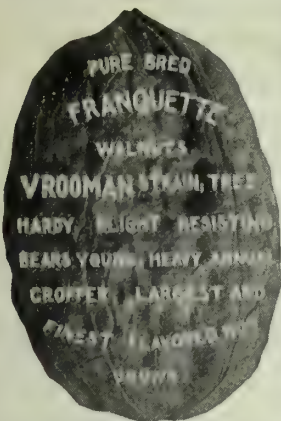 PURE BRED
FRANQUETTE
WALNUTS
VROOMAN STRAIN, TREE
HARDY, BLIGHT RESISTING
BEARS YOUNG, HEAVY ANNUAL
CROPPER, LARGEST AND
FINEST FLAVORED NUT
GROWN